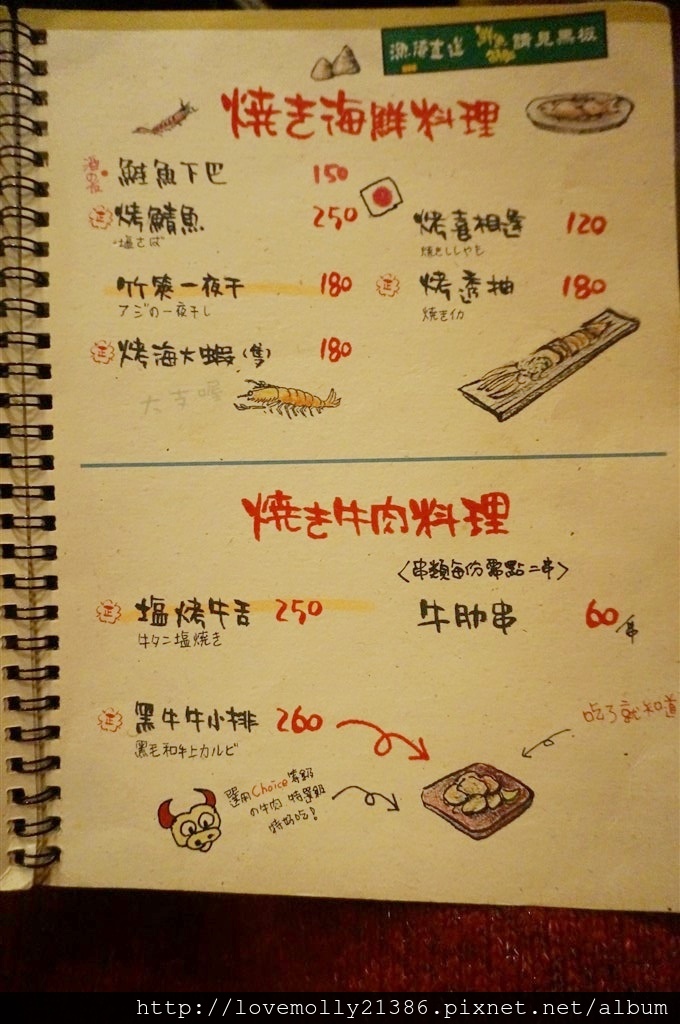 漁港直送 請見黑板
焼き海鮮料理
鮭魚下巴 150
烤鯖魚 250
塩さば
烤喜相逢 120
焼きししゃも
竹筴一夜干 180
アジの一夜干し
烤透抽 180
焼きイカ
烤海大蝦(隻) 180
大支喔
焼き牛肉料理
<串類每份需點二串>
塩烤牛舌 250
牛タン塩焼き
牛肋串 60/串
黑牛牛小排 260
黒毛和牛上カルビ
吃了就知道
選用Choice等級
の牛肉 特選級
特好吃!
http://lovemolly21386.pixnet.net/album